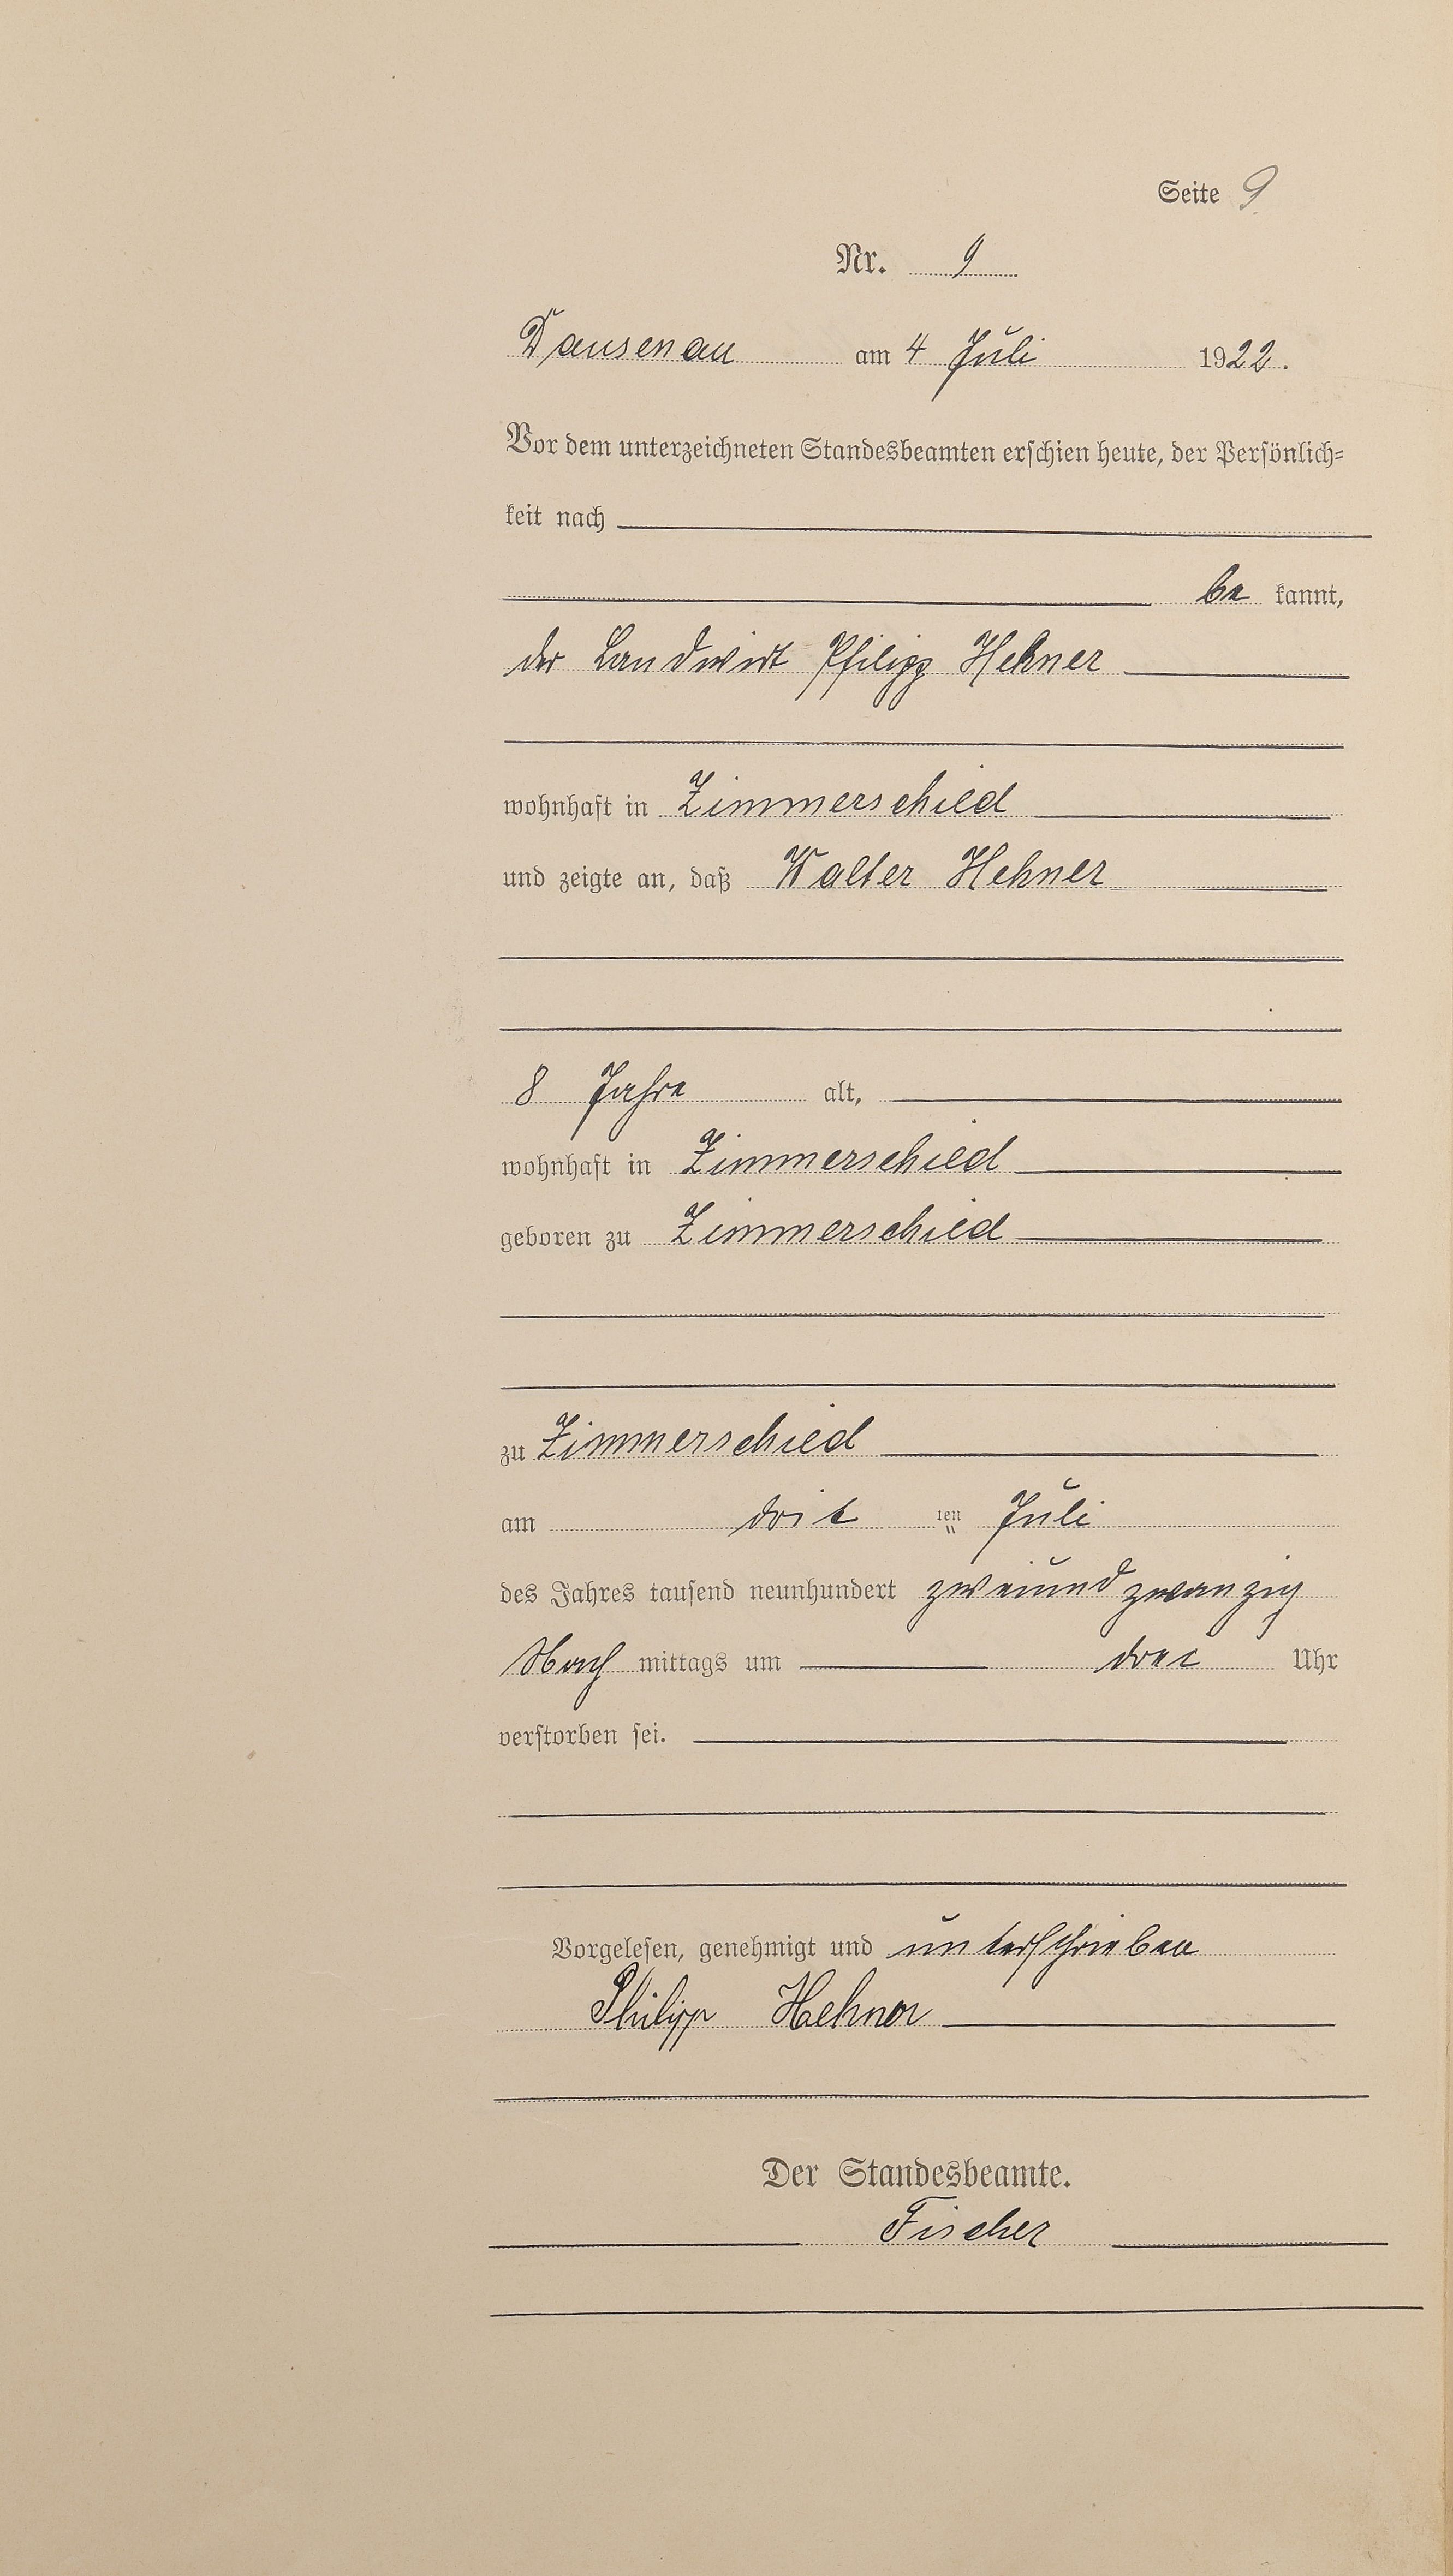 Seite 9
Nr. 9
Dausenau am 4 Juli 1922.
Vor dem unterzeichneten Standesbeamten erschien heute, der Persönlich=
keit nach
be kannt,
der Landwirt Philipp Hehner
wohnhaft in Zimmerschied
und zeigte an, daß Walter Hehner
8 Jahre alt,
wohnhaft in Zimmerschied
geboren zu Zimmerschied
zu Zimmerschied
am drit ten Juli
des Jahres tausend neunhundert zweiundzwanzig
Nach mittags um drei Uhr
verstorben sei.
Vorgelesen, genehmigt und unterschrieben
Philipp Hehner
Der Standesbeamte.
Fischer